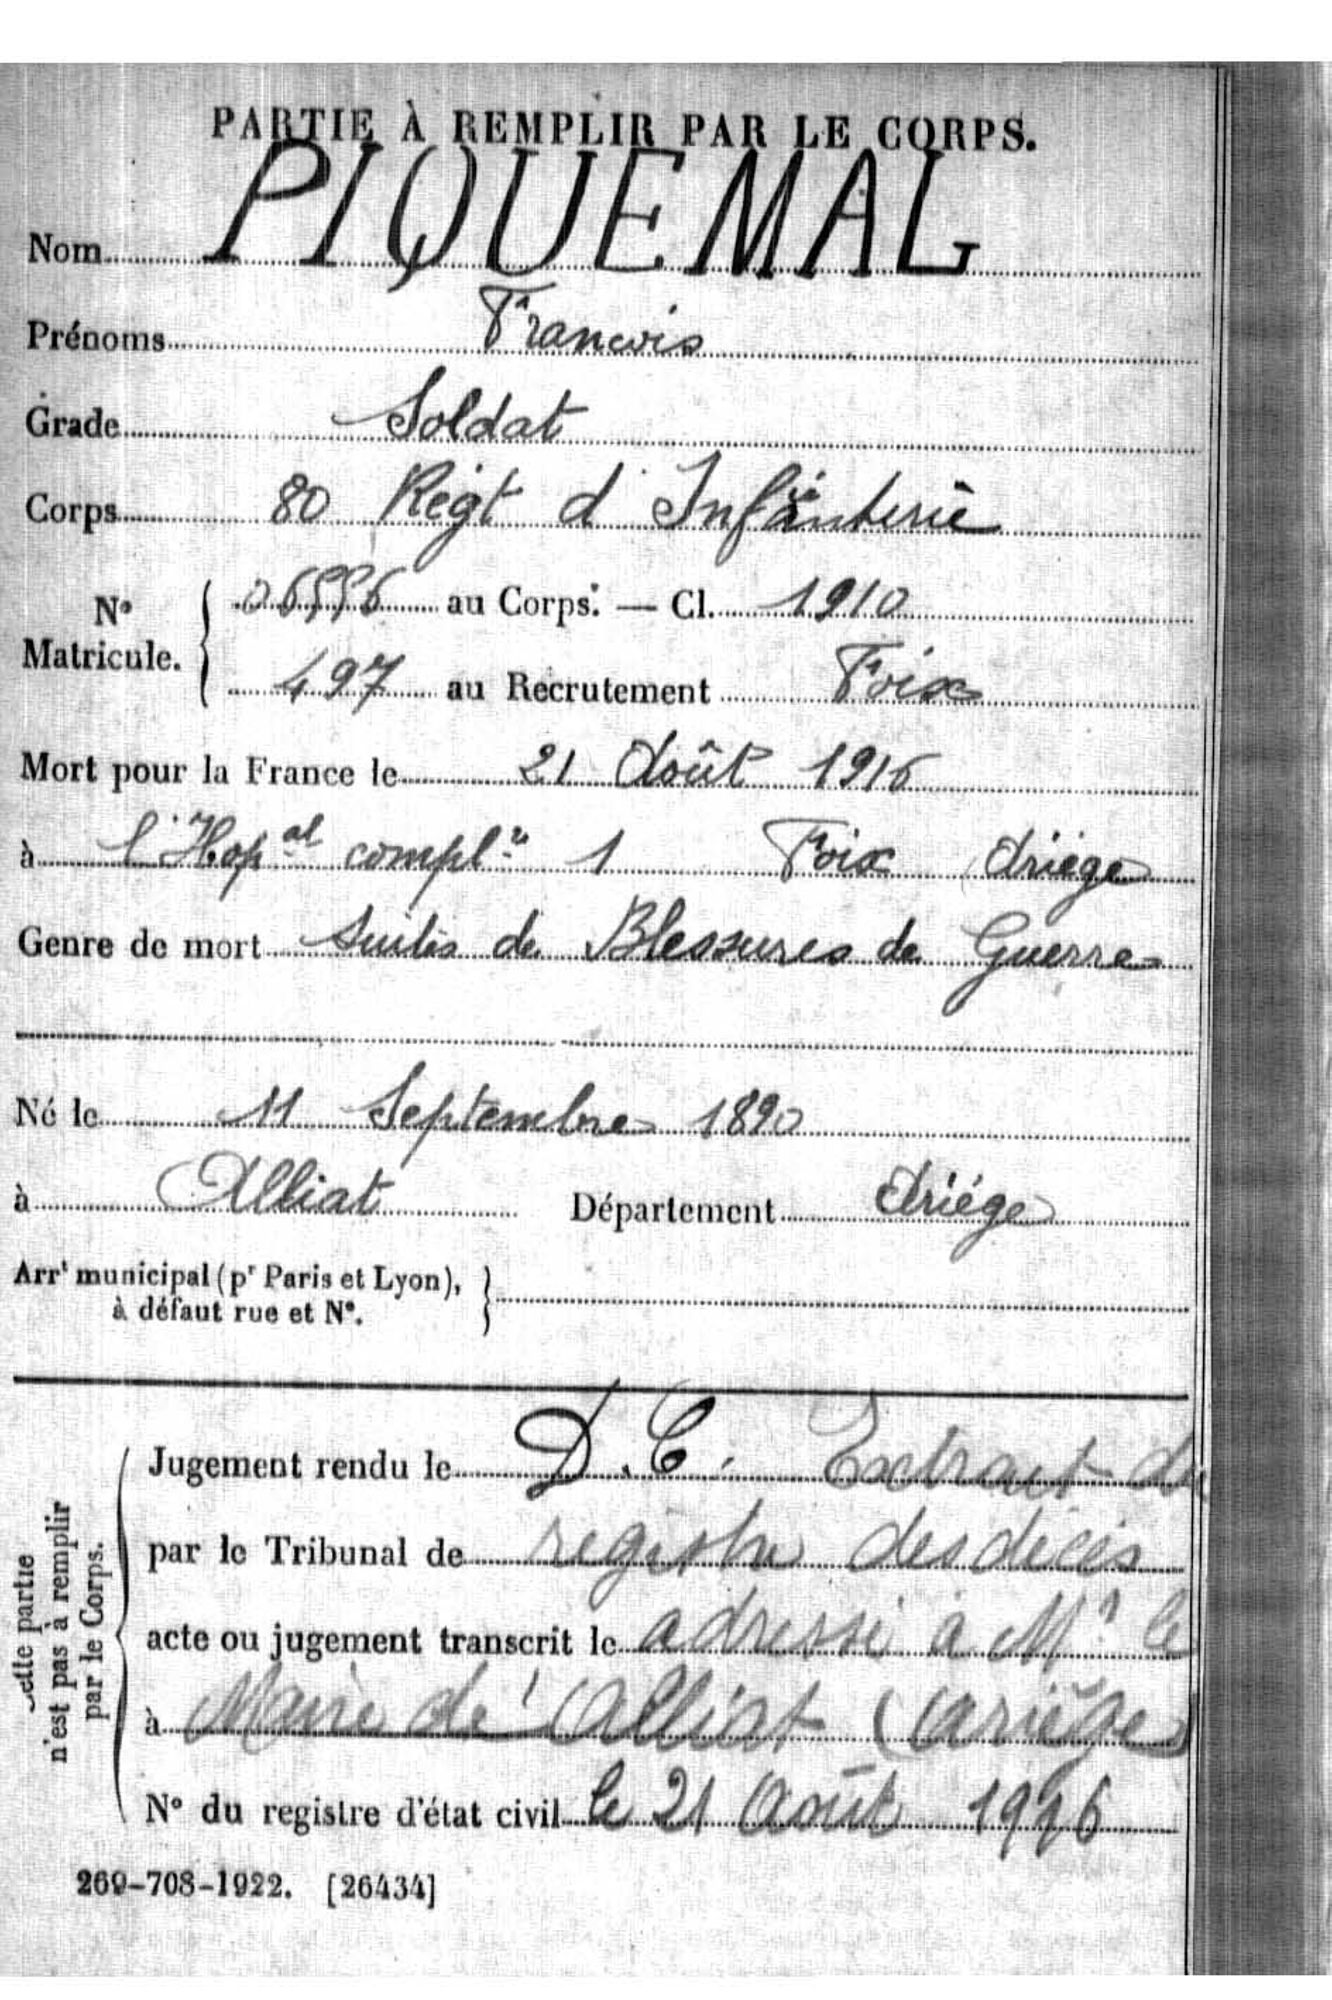 PARTIE À REMPLIR PAR LE CORPS.
Nom PIQUEMAL
Prénoms Francois
Grade Soldat
Corps 80 Régt d'Infanterie
N° Matricule. { au Corps. — Cl. 1910
497 au Recrutement Foix
Mort pour la France le 21 Août 1916
à l'Hop al compl re 1 Foix Ariège
Genre de mort Suites de Blessures de Guerre
Né le 11 Septembre 1890
à Alliat Département Ariége
Arrt municipal (pr Paris et Lyon), }
à défaut rue et N°.
Cette partie
n'est pas à remplir
par le Corps.
Jugement rendu le D.C. Extrait du
par le Tribunal de registre des décès
acte ou jugement transcrit le adressé à Mr le
à Maire de Alliat (Ariège)
N° du registre d'état civil le 21 Août 1916
269-708-1922. [26434]